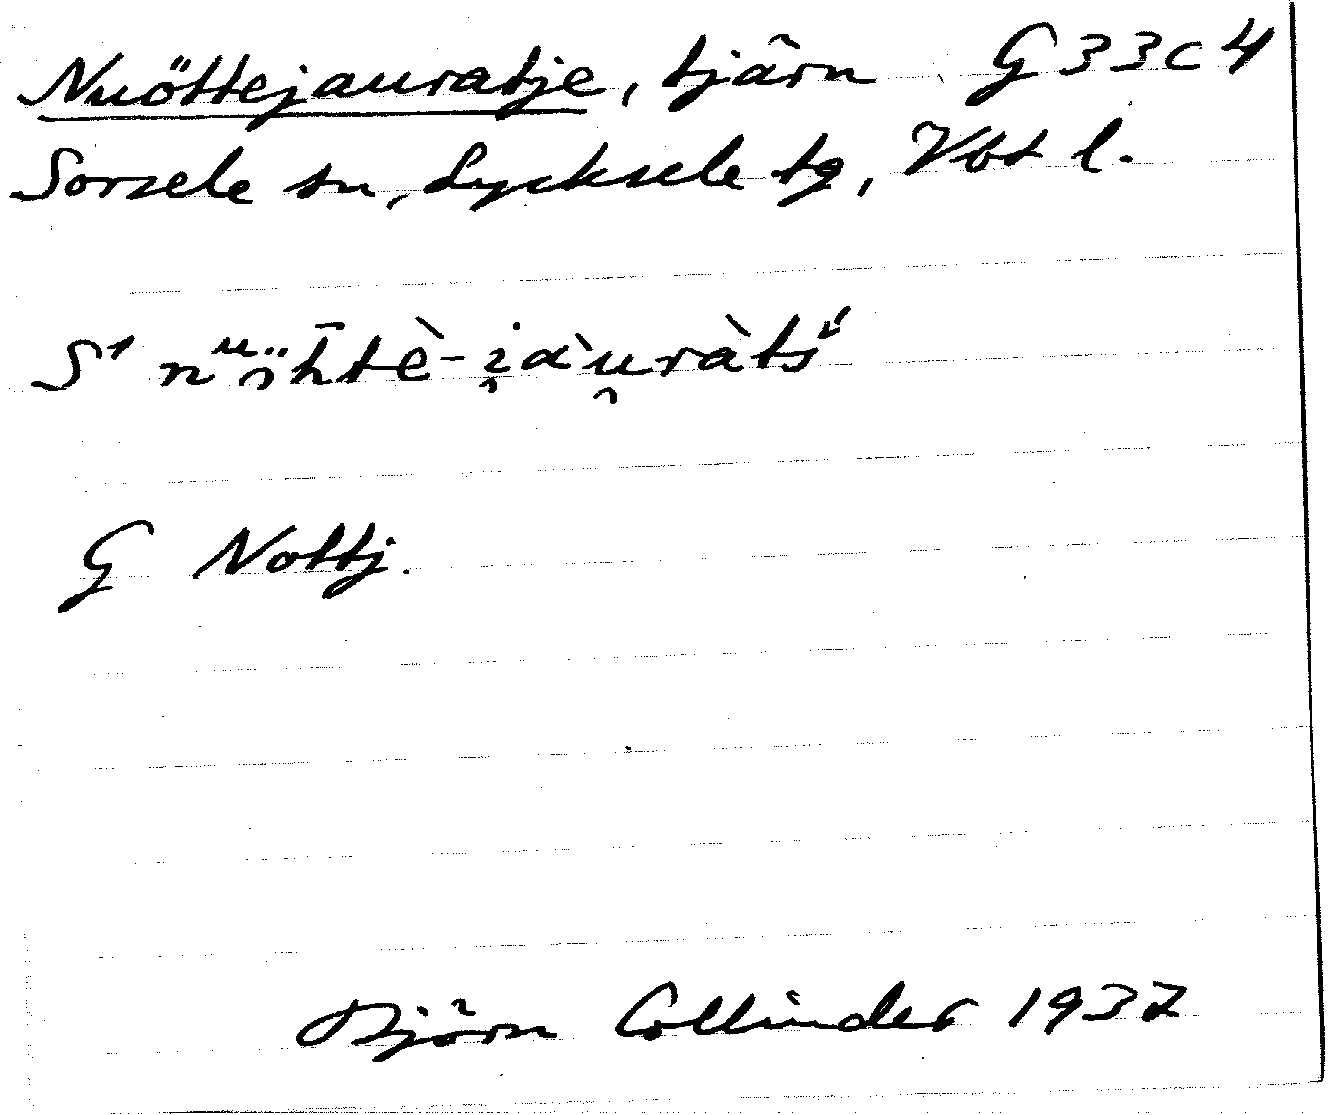 Nuöttejauratje, tjärn G 33c4
Sorsele sn, Lycksele tg, Vbt l.
G Nottj.
Björn Collinder 1937